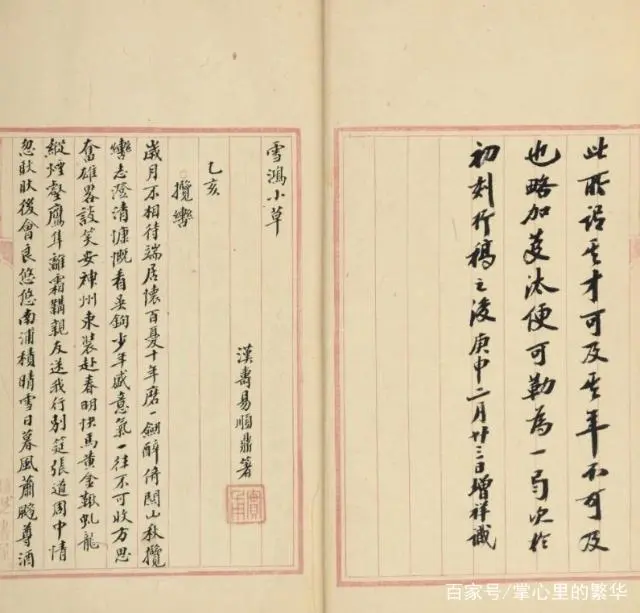 此所謂其才可及其年不可及
也略加芟汰便可勒為一次於
初刻行稿之後庚申二月廿三日增祥識
雪鴻小草
漢壽易順鼎著
實甫
乙亥
攬轡
歲月不相待端居懷百憂十年磨一劍醉倚關山秋攬
轡志澄清慷慨看吳鉤少年盛意氣一往不可收方思
奮雄畧談笑安神州束裝赴春明快馬黃金鞦虬龍
縱煙壑鷹隼離霜鞲親友送我行別筵張道周中情
忽後會良悠悠南浦積晴雪日暮風蕭飀尊酒
百家号/掌心里的繁华